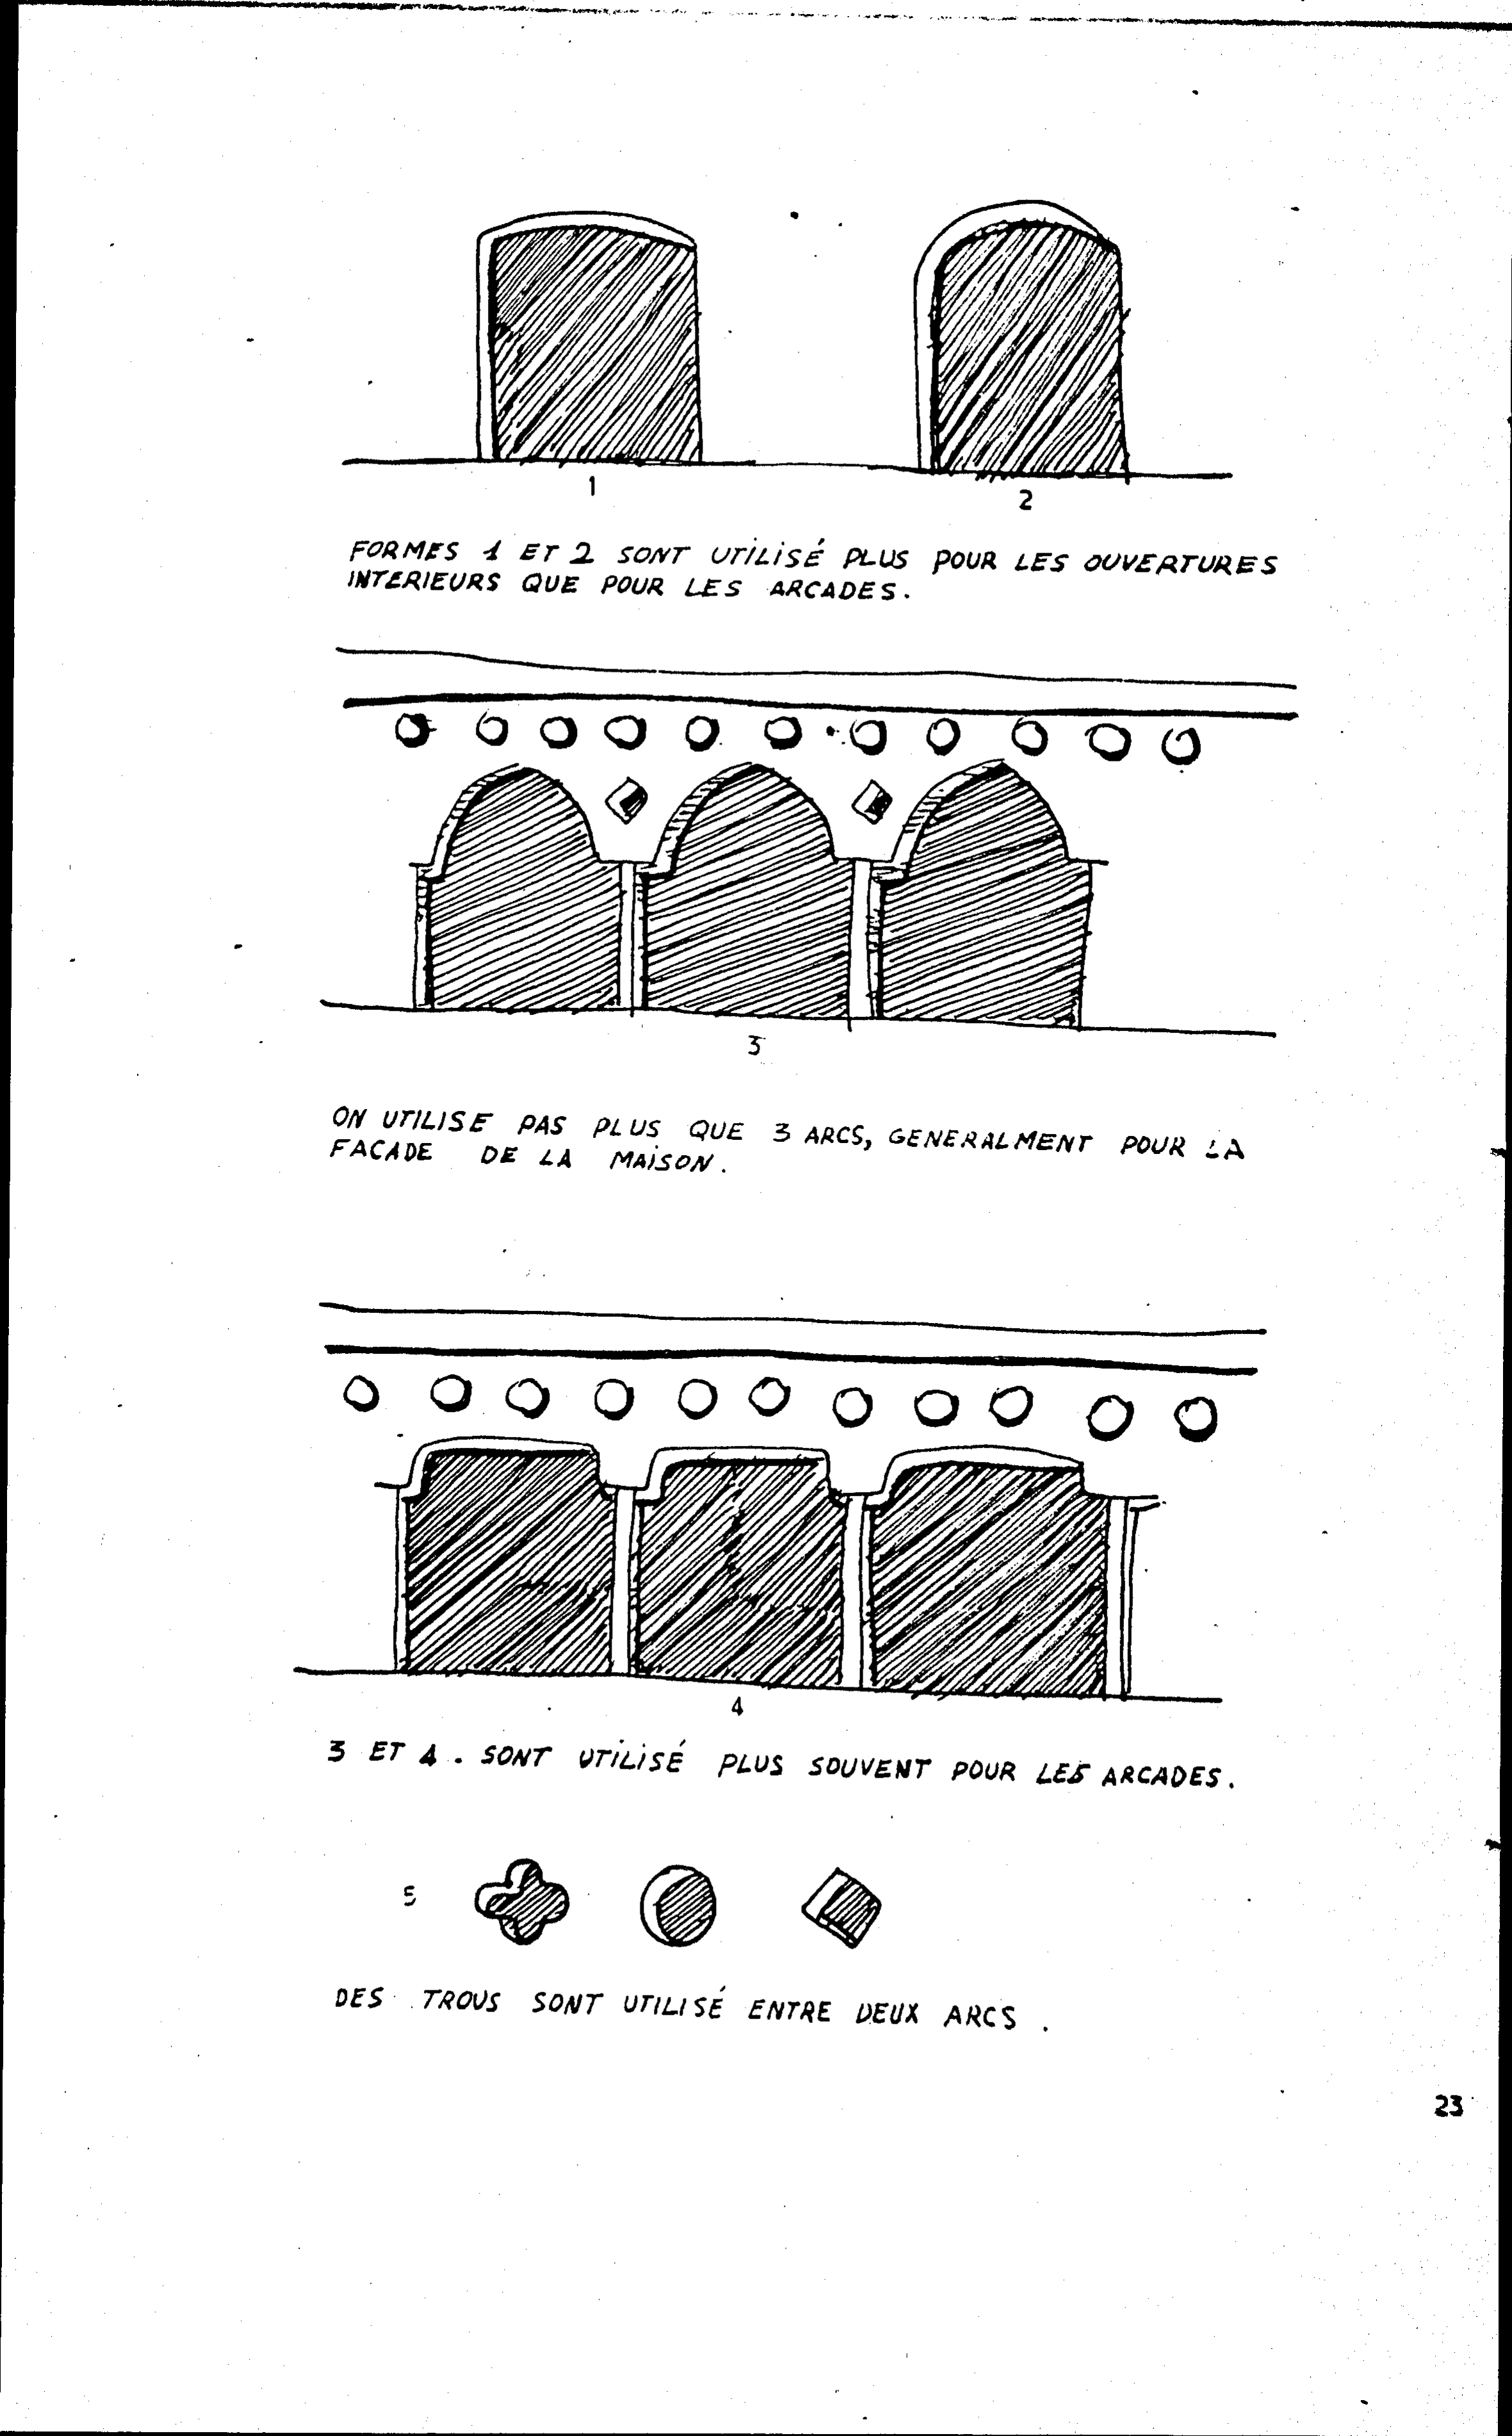 1
2
FORMES 1 ET 2 SONT UTILISÉ PLUS POUR LES OUVERTURES
INTERIEURS QUE POUR LES ARCADES.
3
ON UTILISE PAS PLUS QUE 3 ARCS, GENERALMENT POUR LA
FACADE DE LA MAISON.
4
3 ET 4. SONT UTILISÉ PLUS SOUVENT POUR LES ARCADES.
5
DES TROUS SONT UTILISÉ ENTRE DEUX ARCS.
23